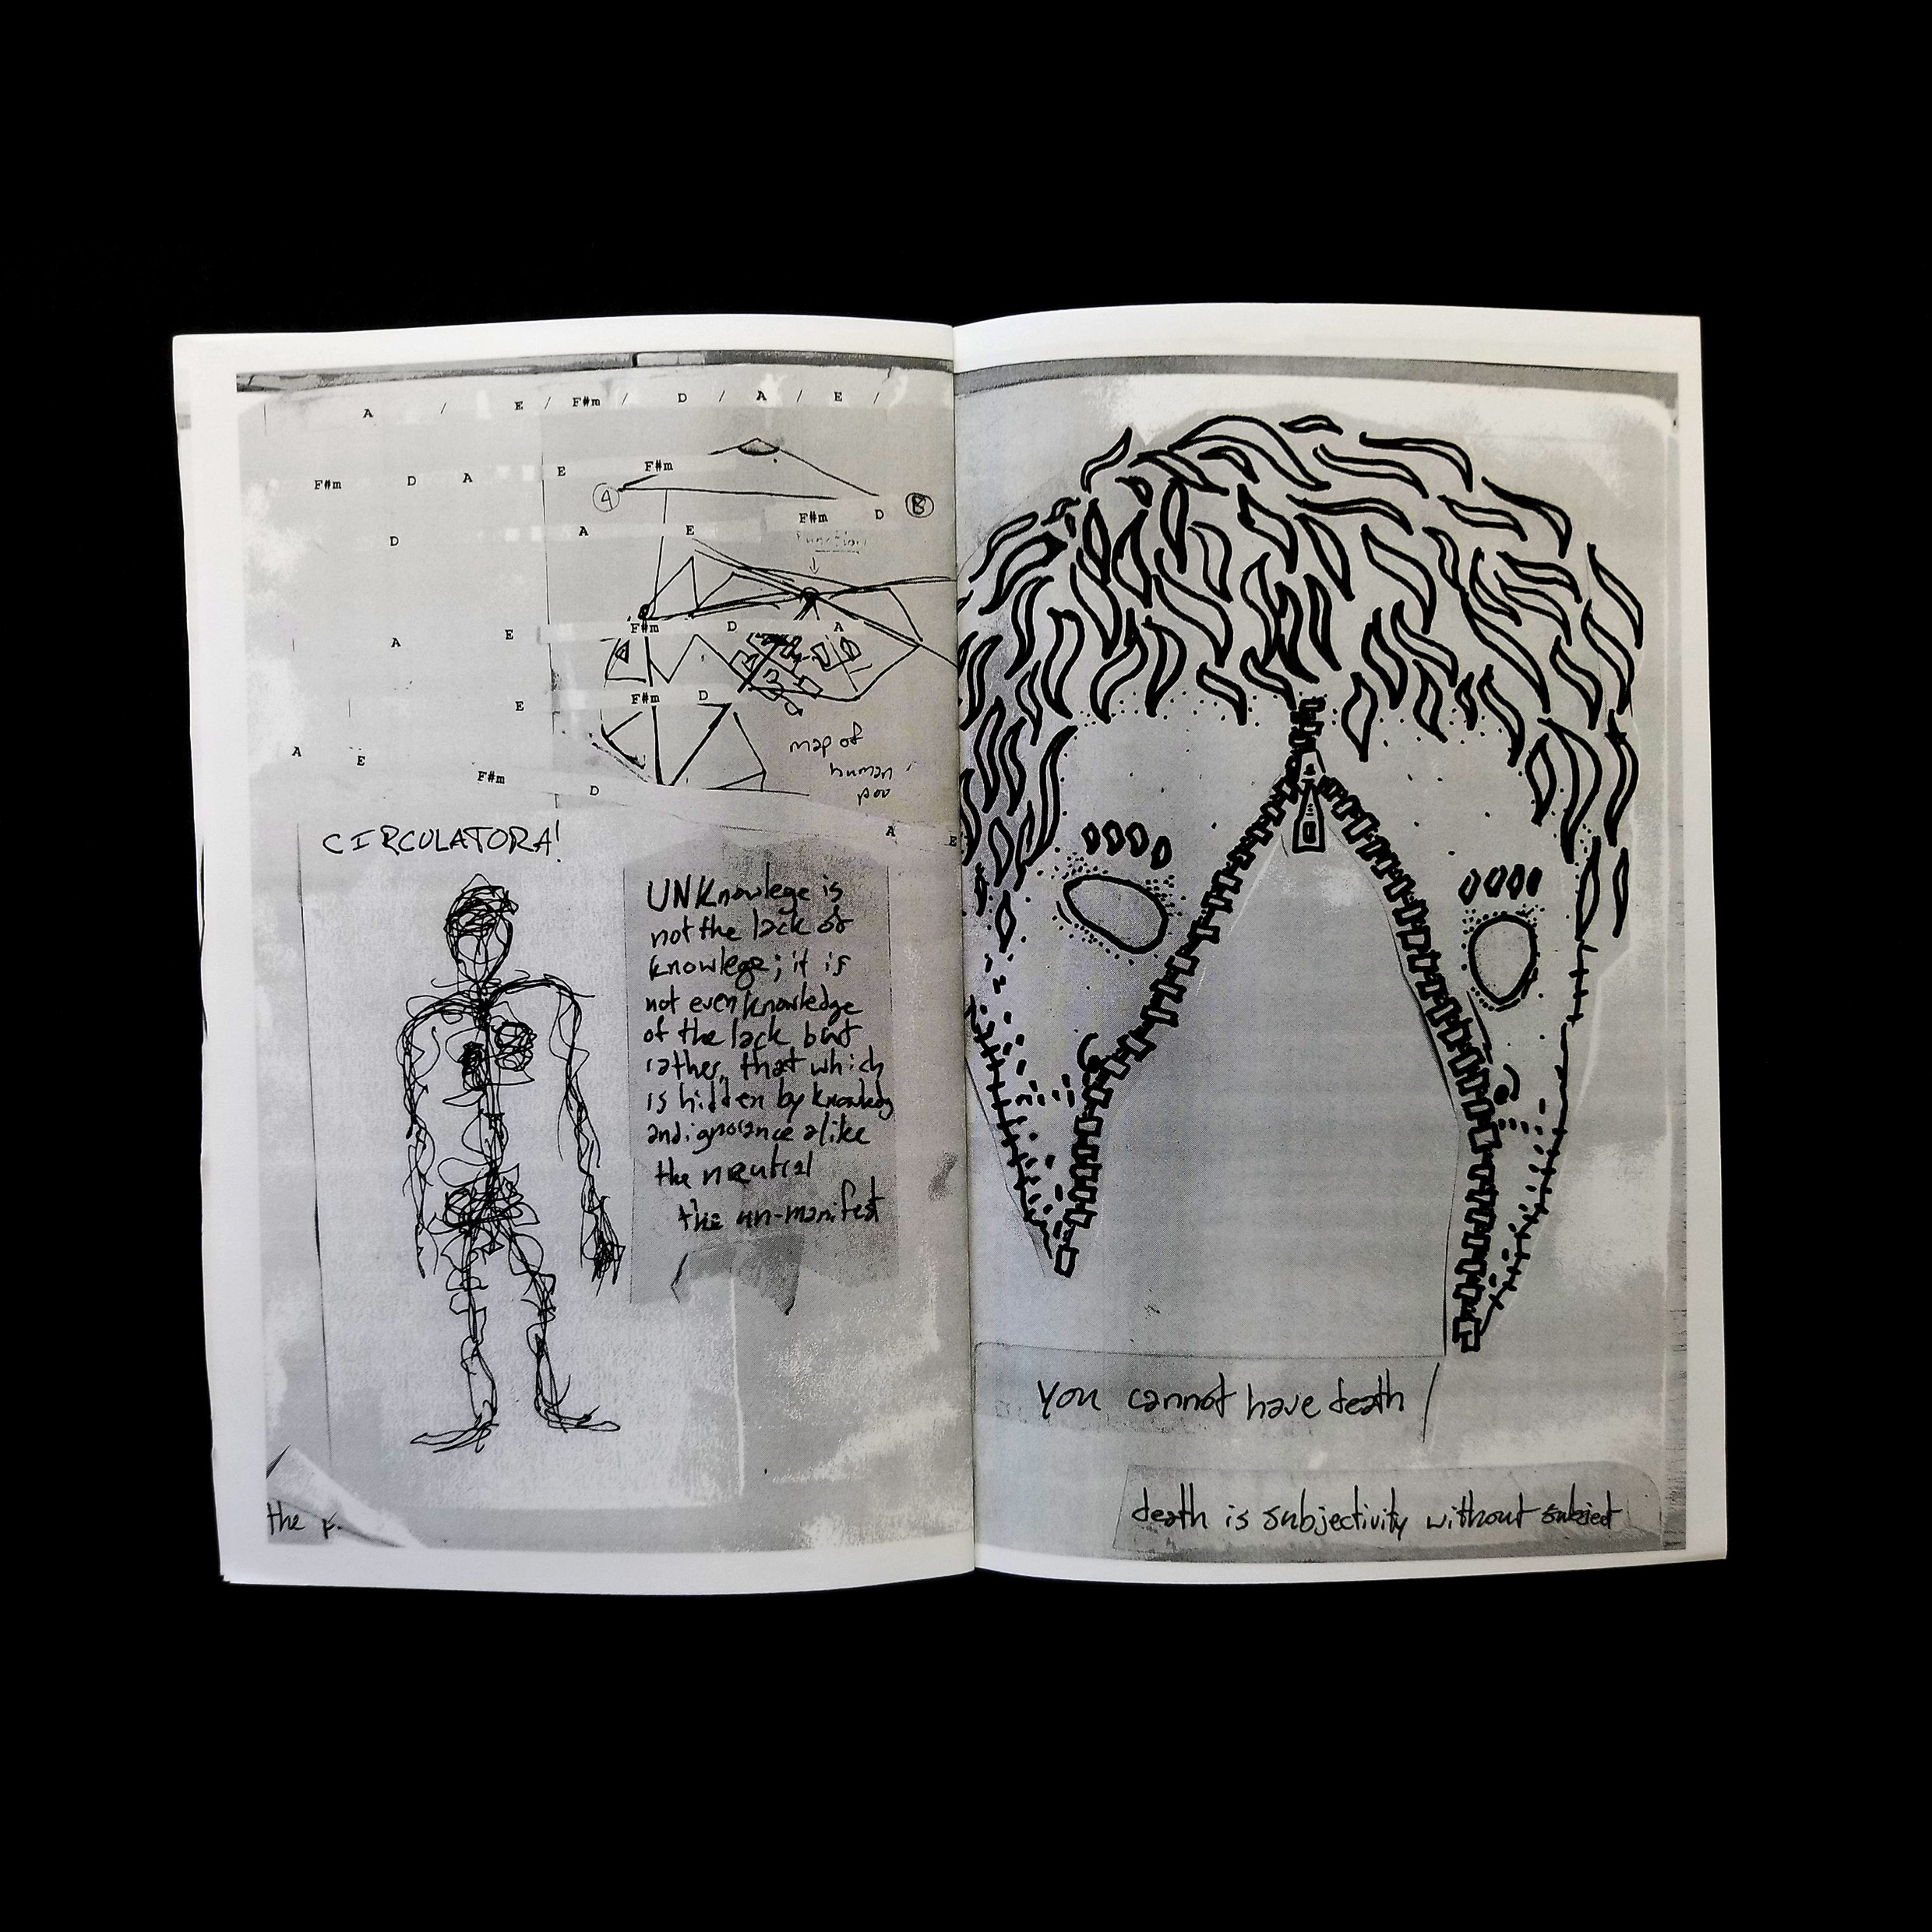 A / E / F#m / D / A / E /
F#m D A E F#m
A B
D A E F#m D
function
A E F#m D A
E F#m D
map of
human
poo
A E F#m D A E
CIRCULATORA!
UNKnowlege is
not the lack of
knowlege; it is
not even knowledge
of the lack but
rather, that which
is hidden by knowledg
and ignorance alike
the neutral
the un-manifest
the
you cannot have death /
death is subjectivity without subject